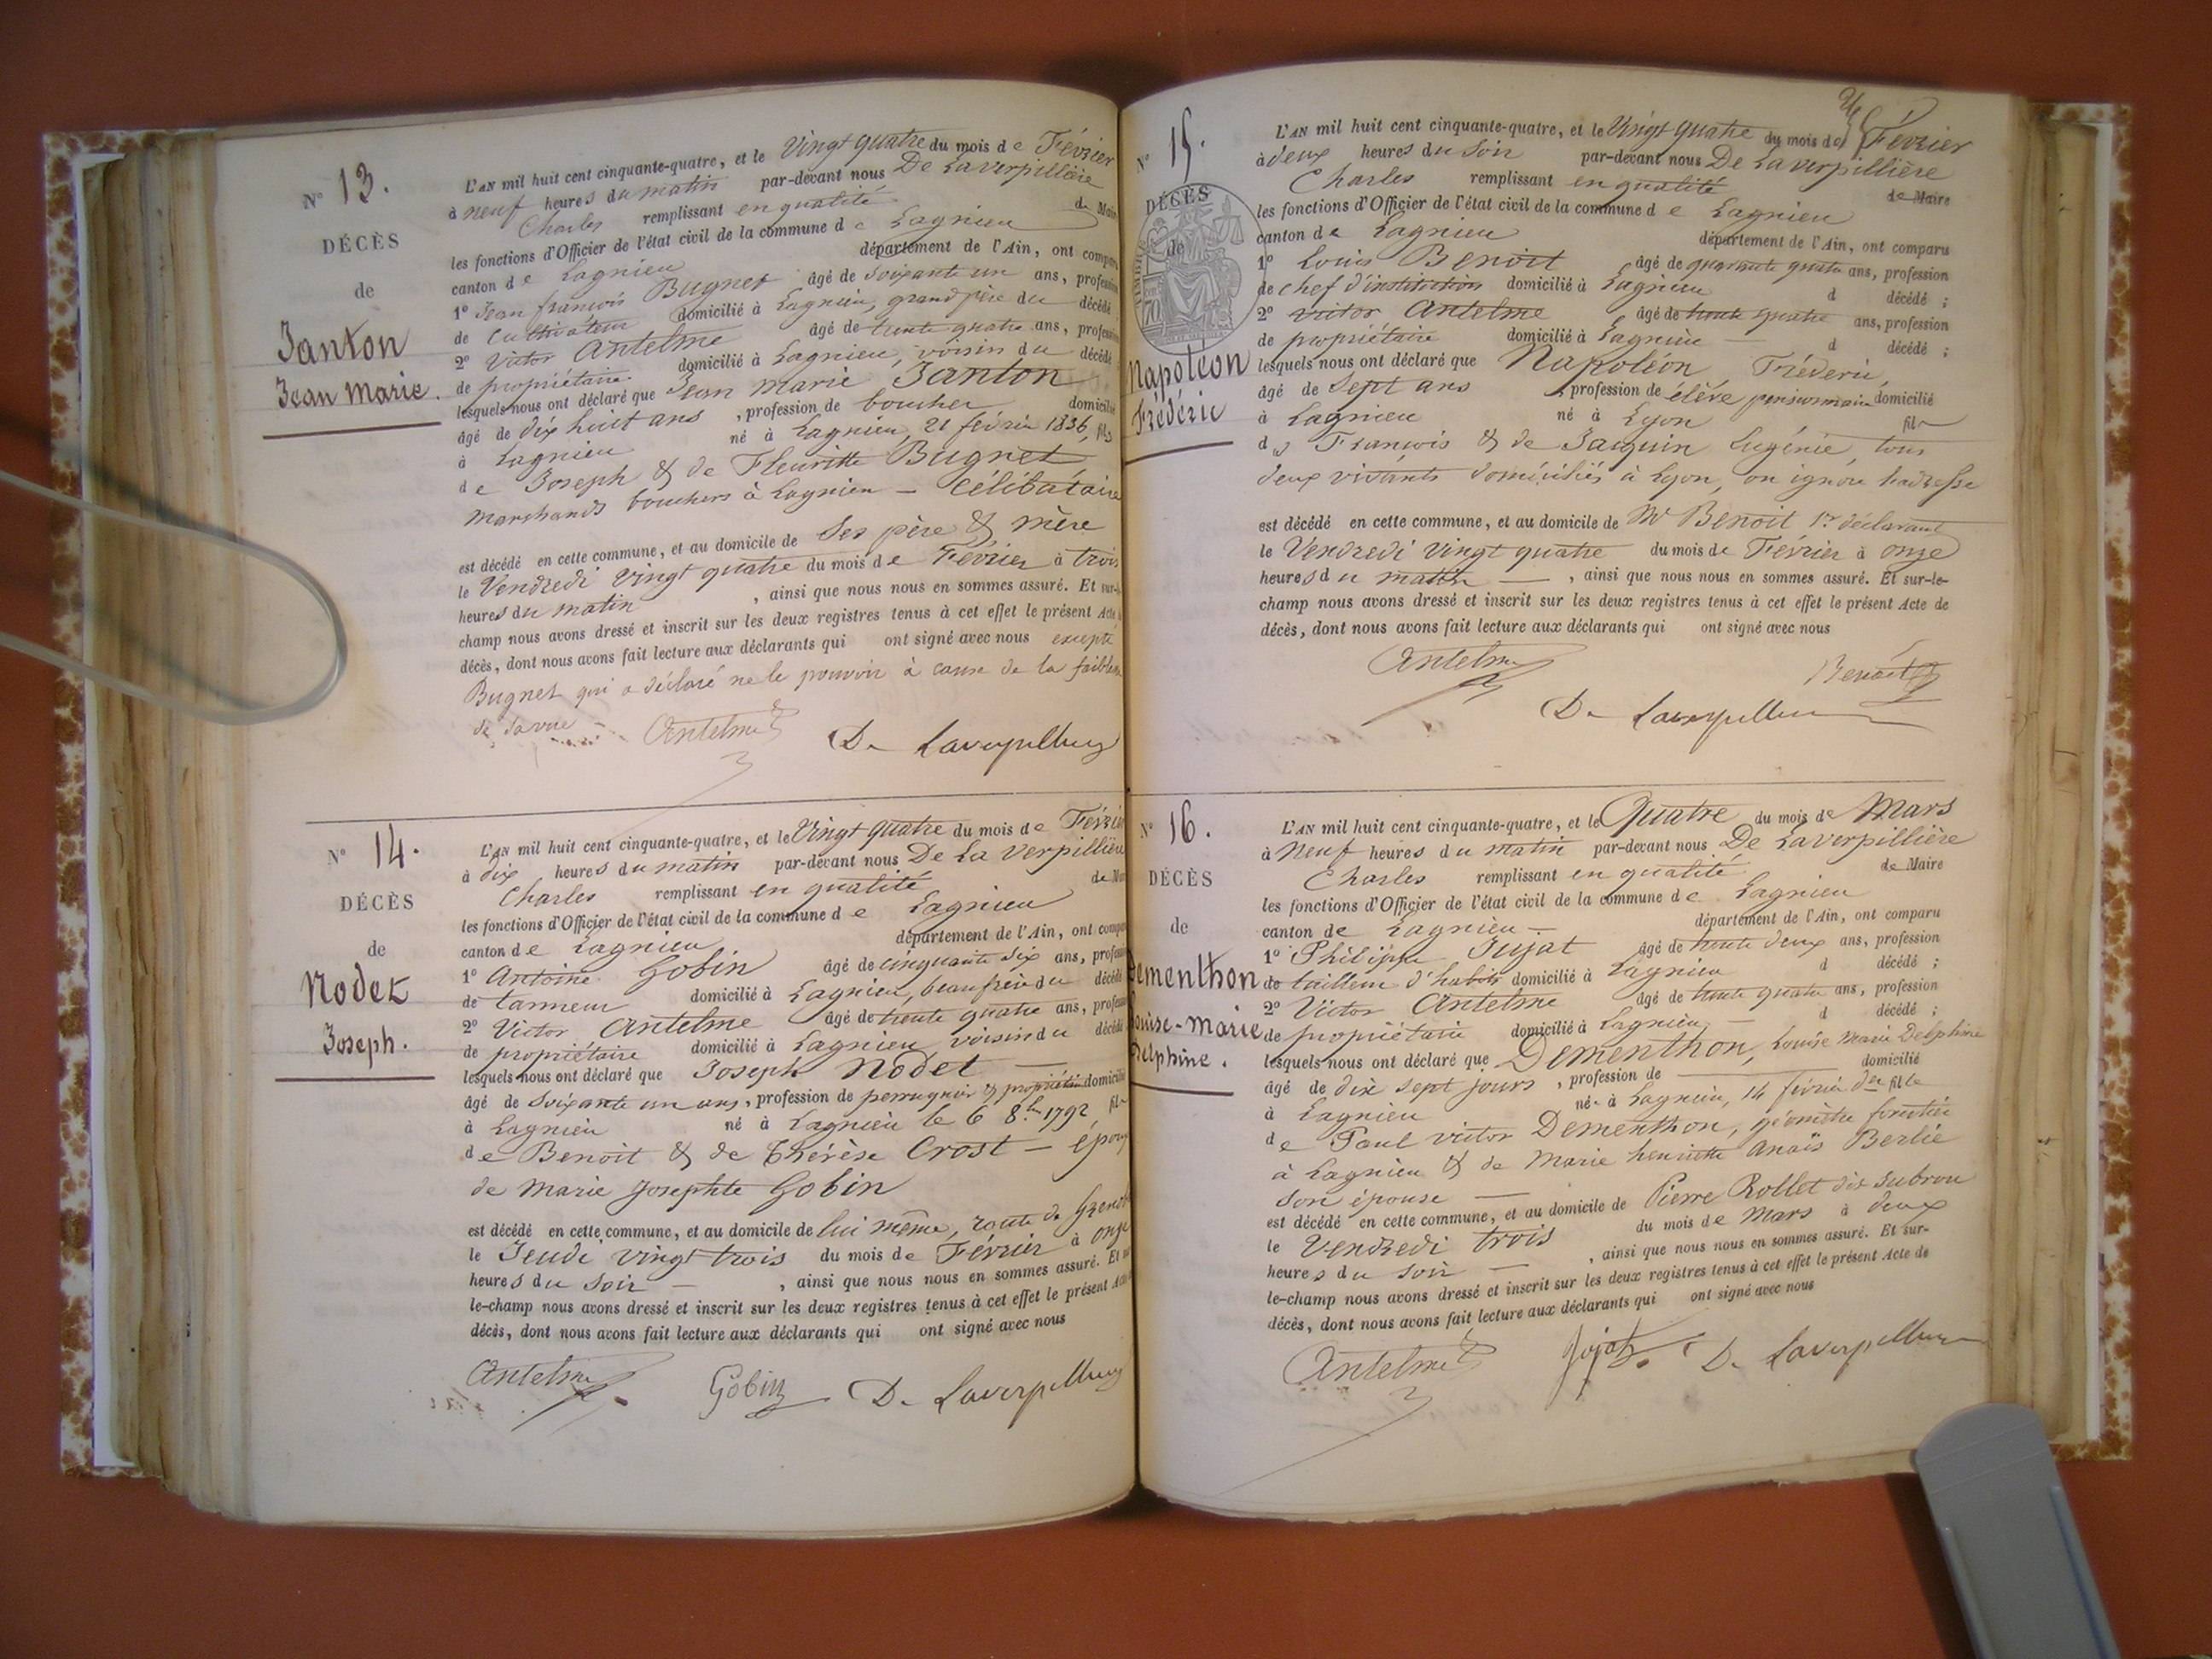 N° 13.
DÉCÈS
de
Janton
Jean Marie.
L'AN mil huit cent cinquante-quatre, et le Vingt quatre du mois de Février
à neuf heures du matin par-devant nous De Laverpillière
Charles remplissant en qualité de Maire
les fonctions d'Officier de l'état civil de la commune de Lagnieu
canton de Lagnieu département de l'Ain, ont comparu
1° Jean françois Bugnet âgé de soixante un ans, profession
de Cultivateur domicilié à Lagnieu, grand père du décédé
2° Victor Antelme âgé de trente quatre ans, profession
de propriétaire domicilié à Lagnieu, voisin du décédé
lesquels nous ont déclaré que Jean Marie Janton
âgé de dix huit ans, profession de boucher domicilié
à Lagnieu né à Lagnieu, 21 février 1836, fils
de Joseph & de Fleuritte Bugnet
marchands bouchers à Lagnieu - Célibataire
est décédé en cette commune, et au domicile de Ses père & mère
le Vendredi vingt quatre du mois de Février à trois
heures du matin, ainsi que nous nous en sommes assuré. Et sur-le-
champ nous avons dressé et inscrit sur les deux registres tenus à cet effet le présent Acte de
décès, dont nous avons fait lecture aux déclarants qui ont signé avec nous excepté
Bugnet qui a déclaré ne le pouvoir à cause de la faiblesse
de sa vue - Antelme De Laverpillière
N° 14.
DÉCÈS
de
Nodet
Joseph.
L'AN mil huit cent cinquante-quatre, et le Vingt quatre du mois de Février
à dix heures du matin par-devant nous De La verpillière
Charles remplissant en qualité de Maire
les fonctions d'Officier de l'état civil de la commune de Lagnieu
canton de Lagnieu département de l'Ain, ont comparu
1° Antoine Gobin âgé de cinquante six ans, profession
de tanneur domicilié à Lagnieu, beau frère du décédé
2° Victor Antelme âgé de trente quatre ans, profession
de propriétaire domicilié à Lagnieu voisin du décédé
lesquels nous ont déclaré que Joseph Nodet
âgé de soixante un ans, profession de perruquier & propriétaire domicilié
à Lagnieu né à Lagnieu le 6 8bre 1792 fils
de Benoit & de Thérèse Crost - époux
de Marie Josephte Gobin
est décédé en cette commune, et au domicile de lui même, route de Grenoble
le Jeudi vingt trois du mois de Février à onze
heures du soir -, ainsi que nous nous en sommes assuré. Et sur-
le-champ nous avons dressé et inscrit sur les deux registres tenus à cet effet le présent Acte de
décès, dont nous avons fait lecture aux déclarants qui ont signé avec nous
Antelme Gobin De Laverpillière
N° 15.
DÉCÈS
de
Napoléon
Frédéric
L'AN mil huit cent cinquante-quatre, et le Vingt quatre du mois de Février
à deux heures du Soir par-devant nous De Laverpillière
Charles remplissant en qualité de Maire
les fonctions d'Officier de l'état civil de la commune de Lagnieu
canton de Lagnieu département de l'Ain, ont comparu
1° Louis Benoit âgé de quarante quatre ans, profession
de chef d'institution domicilié à Lagnieu d décédé ;
2° Victor Antelme âgé de trente quatre ans, profession
de propriétaire domicilié à Lagnieu - d décédé ;
lesquels nous ont déclaré que Napoléon Fréderic,
âgé de Sept ans, profession de élève pensionnaire domicilié
à Lagnieu né à Lyon fils
de François & de Jacquin Eugénie, tous
deux vivants domiciliés à Lyon, on ignore l'adresse
est décédé en cette commune, et au domicile de Mr Benoit 1er déclarant
le Vendredi vingt quatre du mois de Février à onze
heures du matin -, ainsi que nous nous en sommes assuré. Et sur-le-
champ nous avons dressé et inscrit sur les deux registres tenus à cet effet le présent Acte de
décès, dont nous avons fait lecture aux déclarants qui ont signé avec nous
Antelme Benoit
De Laverpillière
N° 16.
DÉCÈS
de
Dementhon
Louise-Marie
Delphine.
L'AN mil huit cent cinquante-quatre, et le Quatre du mois de Mars
à Neuf heures du matin par-devant nous De Laverpillière
Charles remplissant en qualité de Maire
les fonctions d'Officier de l'état civil de la commune de Lagnieu
canton de Lagnieu - département de l'Ain, ont comparu
1° Philippe Jujat âgé de trente deux ans, profession
de tailleur d'habits domicilié à Lagnieu d décédé ;
2° Victor Antelme âgé de trente quatre ans, profession
de propriétaire domicilié à Lagnieu - d décédé ;
lesquels nous ont déclaré que Dementhon, Louise Marie Delphine
âgé de dix sept jours, profession de domicilié
à Lagnieu née à Lagnieu, 14 février der fille
de Paul Victor Dementhon, géomètre forestier
à Lagnieu & de Marie henriette Anaïs Berlie
son épouse -
est décédé en cette commune, et au domicile de Pierre Rollet dit Subrou
le Vendredi trois du mois de Mars à deux
heures du soir -, ainsi que nous nous en sommes assuré. Et sur-
le-champ nous avons dressé et inscrit sur les deux registres tenus à cet effet le présent Acte de
décès, dont nous avons fait lecture aux déclarants qui ont signé avec nous
Antelme Jujat De Laverpillière